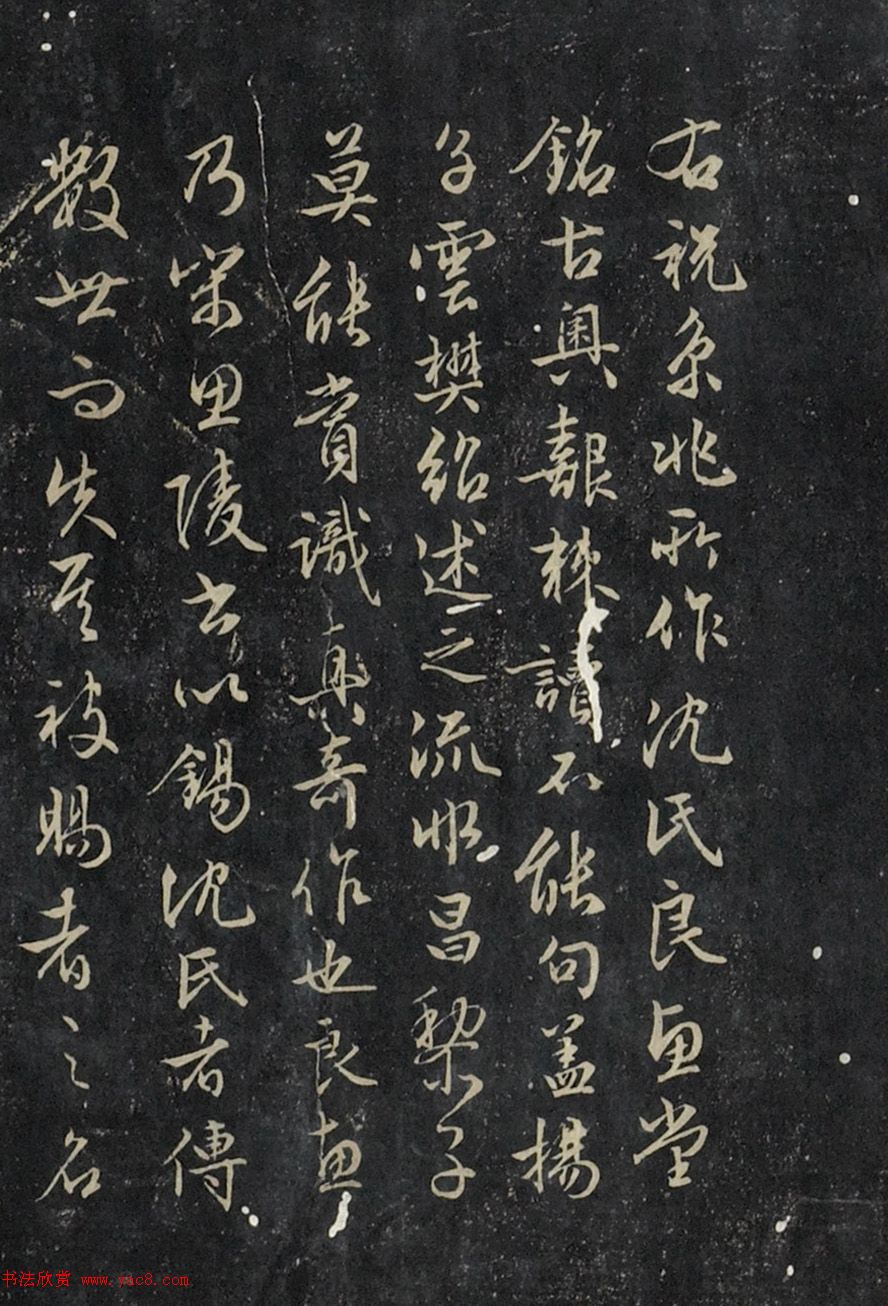 右祝京兆所作沈氏良惠堂
銘古奥艱棘讀不能句蓋揚
子雲樊紹述之流非昌黎子
莫能賞識真奇作也良惠
乃宋思陵書以錫沈氏者傳
數世而失其被賜者之名
书法欣赏 www.yac8.com